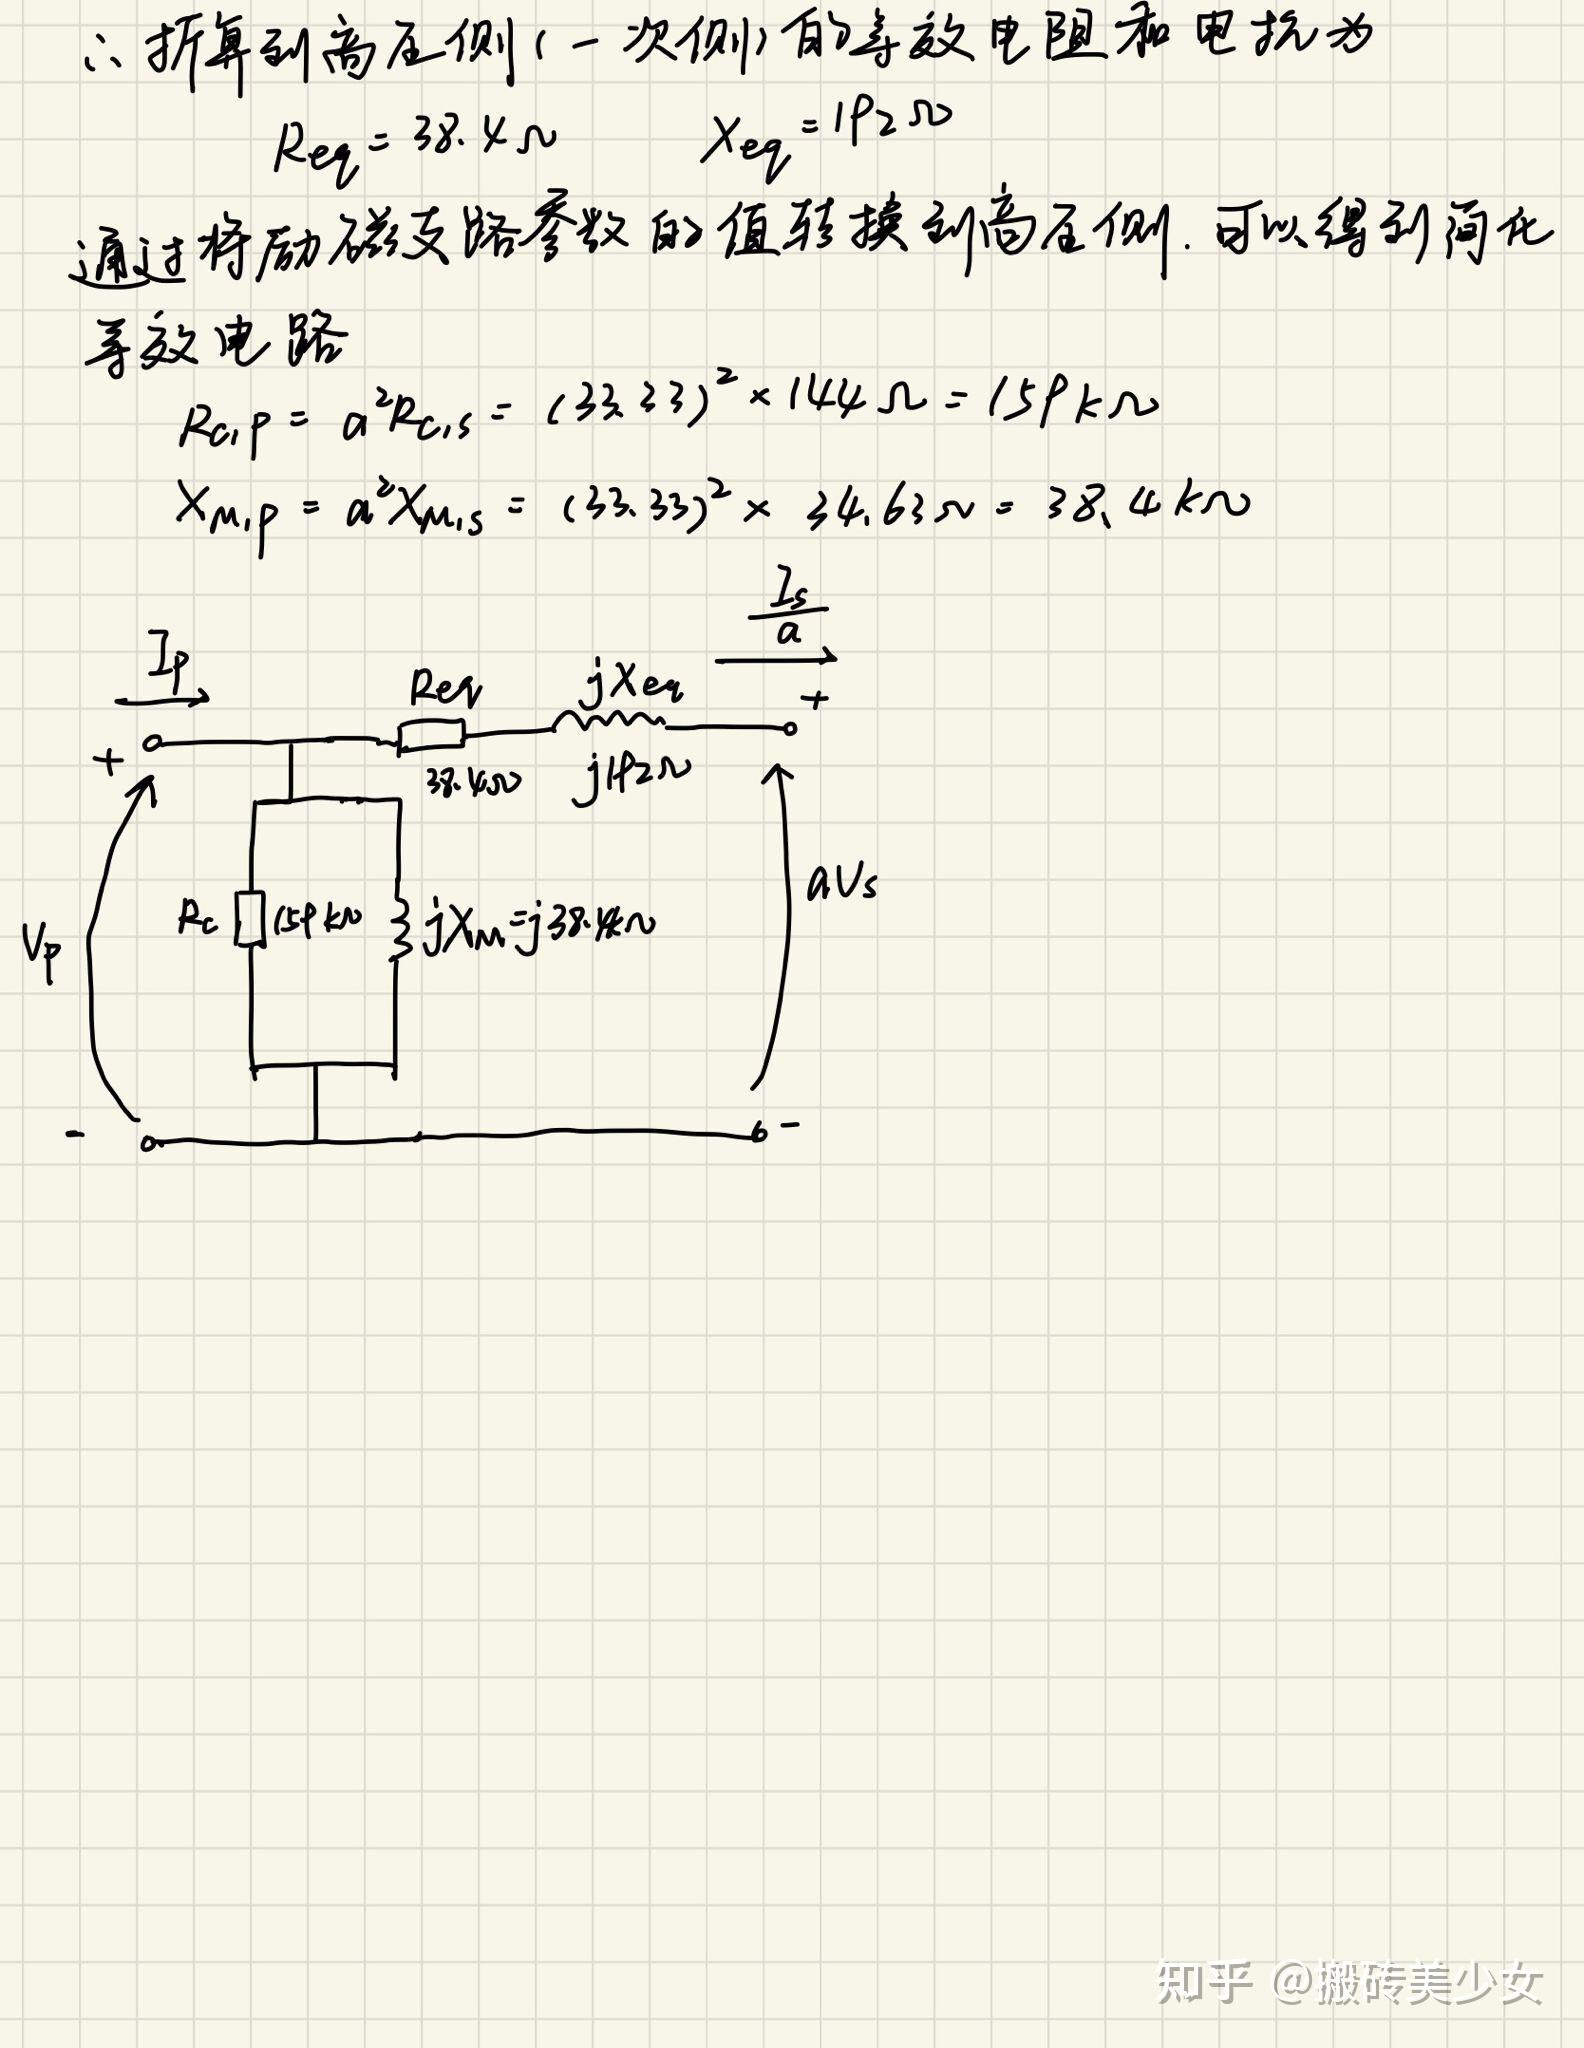 ∴折算到高压侧(一次侧)的等效电阻和电抗为
Req = 38.4Ω Xeq = 192Ω
通过将励磁支路参数的值转换到高压侧.可以得到简化
等效电路
Rc,p = a²Rc,s = (33.33)² × 144Ω = 159kΩ
XM,p = a²XM,s = (33.33)² × 34.63Ω = 38.4kΩ
Is
a
Ip
Req
jXeq
+
+
38.4Ω
j192Ω
Vp
Rc
159kΩ
jXM=j38.4kΩ
aVs
-
-
知乎 @搬砖美少女